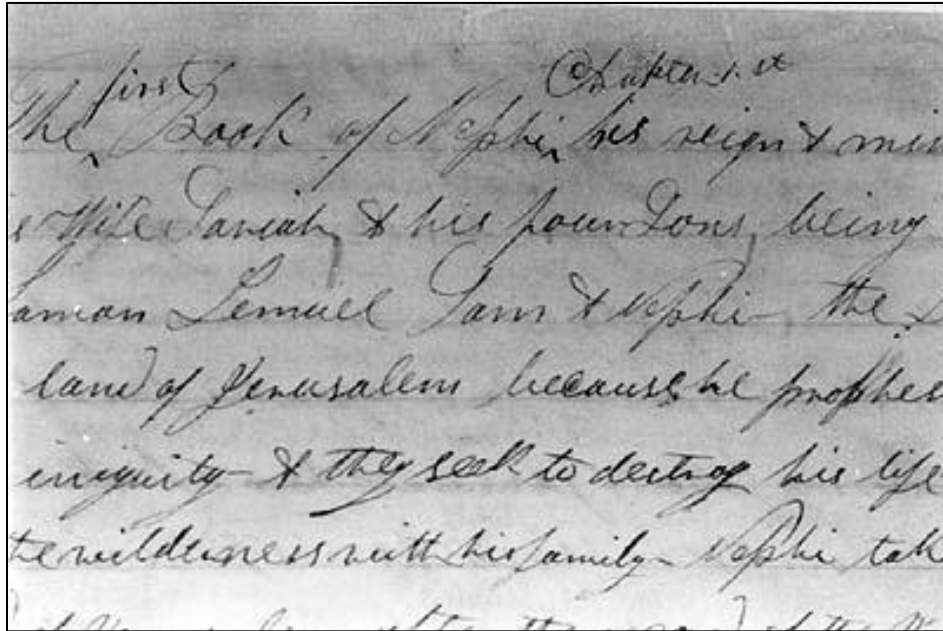 first Chapter 1st
The Book of Nephi his reign & min
s Wife Sariah & his four Sons, being
aman Lemuel Sam & Nephi the
land of Jerusalem because he prophes
iniquity & they seek to destroy his life
the wilderness with his family Nephi tak